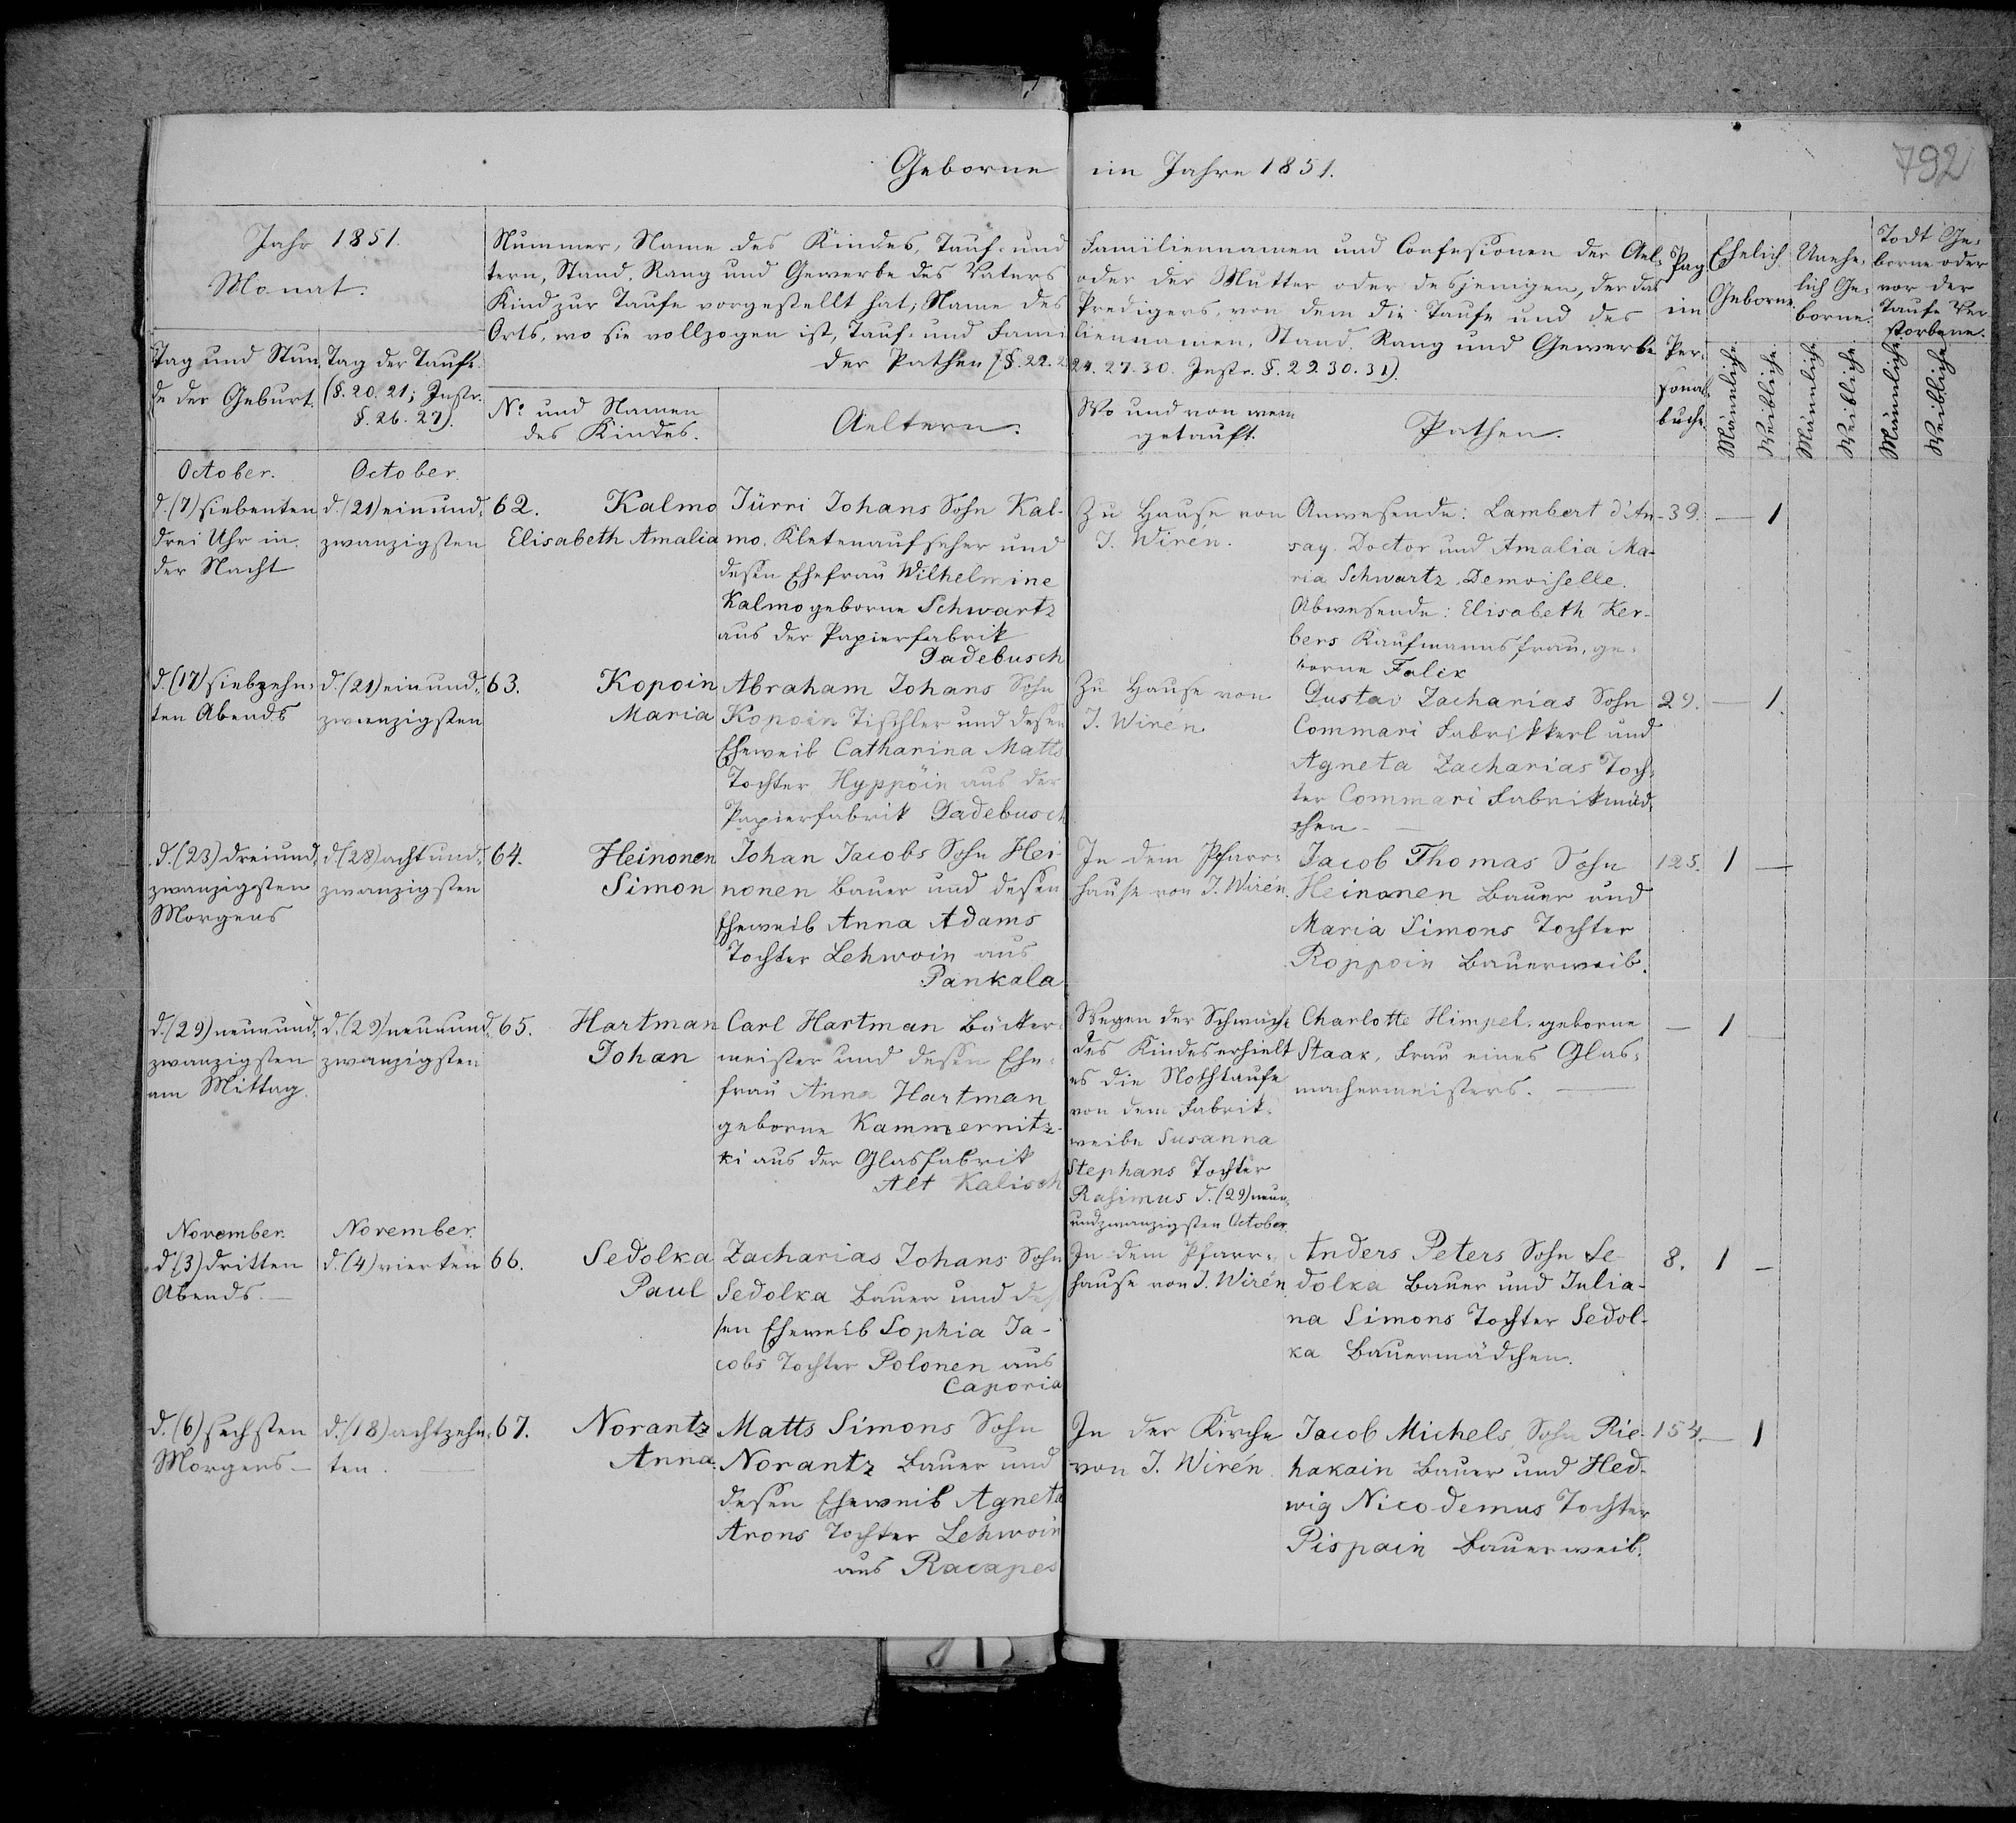 792
Geborne im Jahre 1851.
Jahr 1851.
Monat.
Tag und Stun
de der Geburt.
Tag der Taufe.
(§. 20. 21; Instr.
§. 26. 27).
Nummer, Name des Kindes, Tauf- und Familiennamen und Confessionen der Ael-
tern, Stand, Rang und Gewerbe des Vaters oder der Mutter oder desjenigen, der das
Kind zur Taufe vorgestellt hat; Name des Predigers, von dem die Taufe und des
Orts, wo sie vollzogen ist, Tauf- und Familiennamen, Stand, Rang und Gewerbe
der Pathen (§. 22. 24. 27. 30. Instr. §. 29. 30. 31).
No und Namen
des Kindes.
Aeltern.
Wo und von wem
getauft.
Pathen.
Pag
im
Per-
sonal-
buche.
Ehelich
Geborne.
Unehe-
lich Ge-
borne.
Todt Ge-
borne oder
vor der
Taufe Ver-
storbene.
Männliche.
Weibliche.
Männliche.
Weibliche.
Männliche.
Weibliche.
October.
October.
d. (7) siebenten
drei Uhr in
der Nacht
d. (21) einund-
zwanzigsten
62. Kalmo
Elisabeth Amalia
Jürri Johans Sohn Kal-
mo, Kletenaufseher und
dessen Ehefrau Wilhelmine
Kalmo geborne Schwartz
aus der Papierfabrik
Gadebusch
Zu Hause von
J. Wirén.
Anwesende: Lambert d'An-
say. Doctor und Amalia Ma-
ria Schwartz, Demoiselle.
Abwesende: Elisabeth Ker-
bers Kaufmannsfrau, ge-
borne Falck
39. — 1
d. (17) siebzehn-
ten Abends
d. (21) einund-
zwanzigsten
63. Kopoin
Maria
Abraham Johans Sohn
Kopoin Tischler und dessen
Eheweib Catharina Matts
Tochter Hyppöin aus der
Papierfabrik Gadebusch
Zu Hause von
J. Wiren
Gustav Zacharias Sohn
Commari Fabrikkerl und
Agneta Zacharias Toch-
ter Commari Fabrikmäd-
chen —
29. — 1.
d. (23) dreiund-
zwanzigsten
Morgens
d. (28) achtund-
zwanzigsten
64. Heinonen
Simon
Johan Jacobs Sohn Hei-
nonen Bauer und dessen
Eheweib Anna Adams
Tochter Lehwoin aus
Pankala
In dem Pfarr-
hause von J. Wirén.
Jacob Thomas Sohn
Heinonen Bauer und
Maria Simons Tochter
Roppoin Bauerweib.
125. 1 —
d. (29) neunund-
zwanzigsten
am Mittag
d. (29) neunund-
zwanzigsten
65. Hartman
Johan
Carl Hartman Bäcker-
meister und dessen Ehe-
frau Anna Hartman
geborne Kammernitz-
ki aus der Glasfabrik
Alt Kalisch
Wegen der Schwäche
des Kindes erhielt
es die Nothtaufe
von dem Fabrik-
weibe Susanna
Stephans Tochter
Rasimus d. (29) neun-
undzwanzigsten October
Charlotte Himpel, geborne
Staak, Frau eines Glas-
machermeisters. —
— 1 —
November.
November.
d (3) dritten
Abends. —
d. (4) vierten
66. Sedolka
Paul
Zacharias Johans Sohn
Sedolka Bauer und des
sen Eheweib Sophia Ja-
cobs Tochter Polonen aus
Caporia
In dem Pfarr-
hause von J. Wirén
Anders Peters Sohn Se-
dolka Bauer und Julia-
na Simons Tochter Sedol-
ka Bauermädchen.
8. 1 —
d. (6) sechsten
Morgens —
d. (18) achtzehn-
ten. —
67. Norantz
Anna
Matts Simons Sohn
Norantz Bauer und
dessen Eheweib Agneta
Arons Tochter Lehwoin
aus Racapes
In der Kirche
von J. Wirén
Jacob Michels Sohn Rie-
hakain Bauer und Hed-
wig Nicodemus Tochter
Pispain Bauerweib.
154. — 1